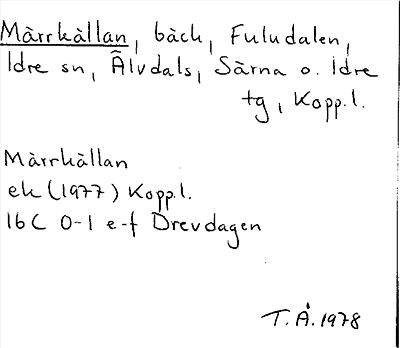 Märrkällan, bäck, Fuludalen,
Idre sn, Älvdals, Särna o. Idre
tg, Kopp.l.
Märrkällan
ek (1977) Kopp.l.
16C 0-1 e-f Drevdagen
T.Å. 1978